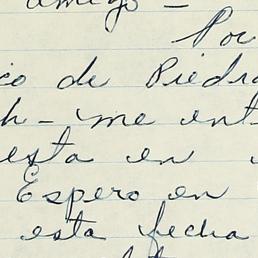 amigo –
Por
co de Piedra
h – me ent
esta en
Espero en
esta fecha